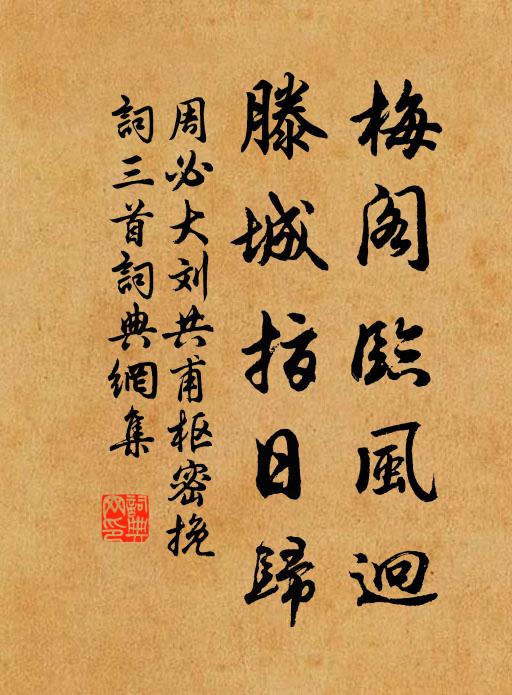 梅阁臨風迥
滕城指日歸
周必大刘共甫枢密挽
詞三首詞典網集
詞典
网印